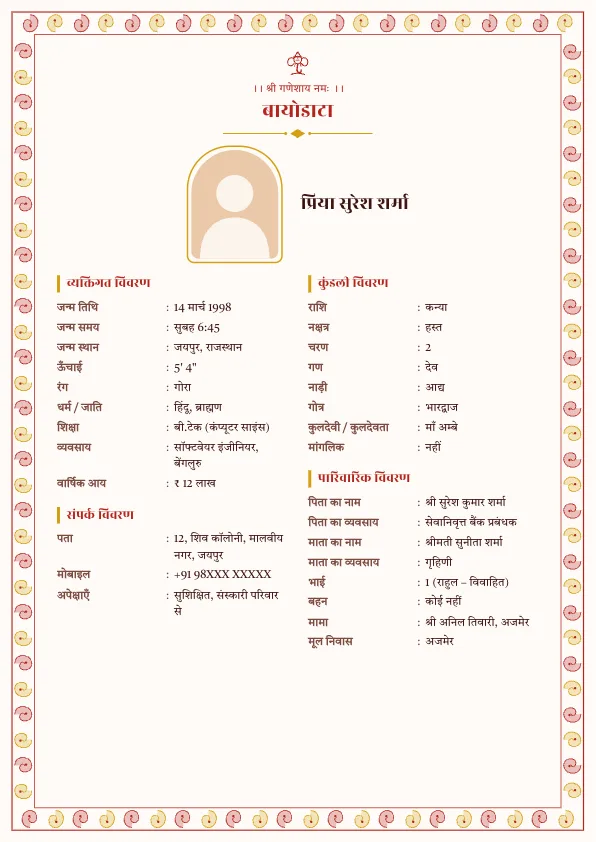 ।। श्री गणेशाय नमः ।।
बायोडाटा
प्रिया सुरेश शर्मा
व्यक्तिगत विवरण
जन्म तिथि : 14 मार्च 1998
जन्म समय : सुबह 6:45
जन्म स्थान : जयपुर, राजस्थान
ऊँचाई : 5' 4"
रंग : गोरा
धर्म / जाति : हिंदू, ब्राह्मण
शिक्षा : बी.टेक (कंप्यूटर साइंस)
व्यवसाय : सॉफ्टवेयर इंजीनियर,
बेंगलुरु
वार्षिक आय : ₹ 12 लाख
संपर्क विवरण
पता : 12, शिव कॉलोनी, मालवीय
नगर, जयपुर
मोबाइल : +91 98XXX XXXXX
अपेक्षाएँ : सुशिक्षित, संस्कारी परिवार
से
कुंडली विवरण
राशि : कन्या
नक्षत्र : हस्त
चरण : 2
गण : देव
नाड़ी : आद्य
गोत्र : भारद्वाज
कुलदेवी / कुलदेवता : माँ अम्बे
मांगलिक : नहीं
पारिवारिक विवरण
पिता का नाम : श्री सुरेश कुमार शर्मा
पिता का व्यवसाय : सेवानिवृत्त बैंक प्रबंधक
माता का नाम : श्रीमती सुनीता शर्मा
माता का व्यवसाय : गृहिणी
भाई : 1 (राहुल – विवाहित)
बहन : कोई नहीं
मामा : श्री अनिल तिवारी, अजमेर
मूल निवास : अजमेर